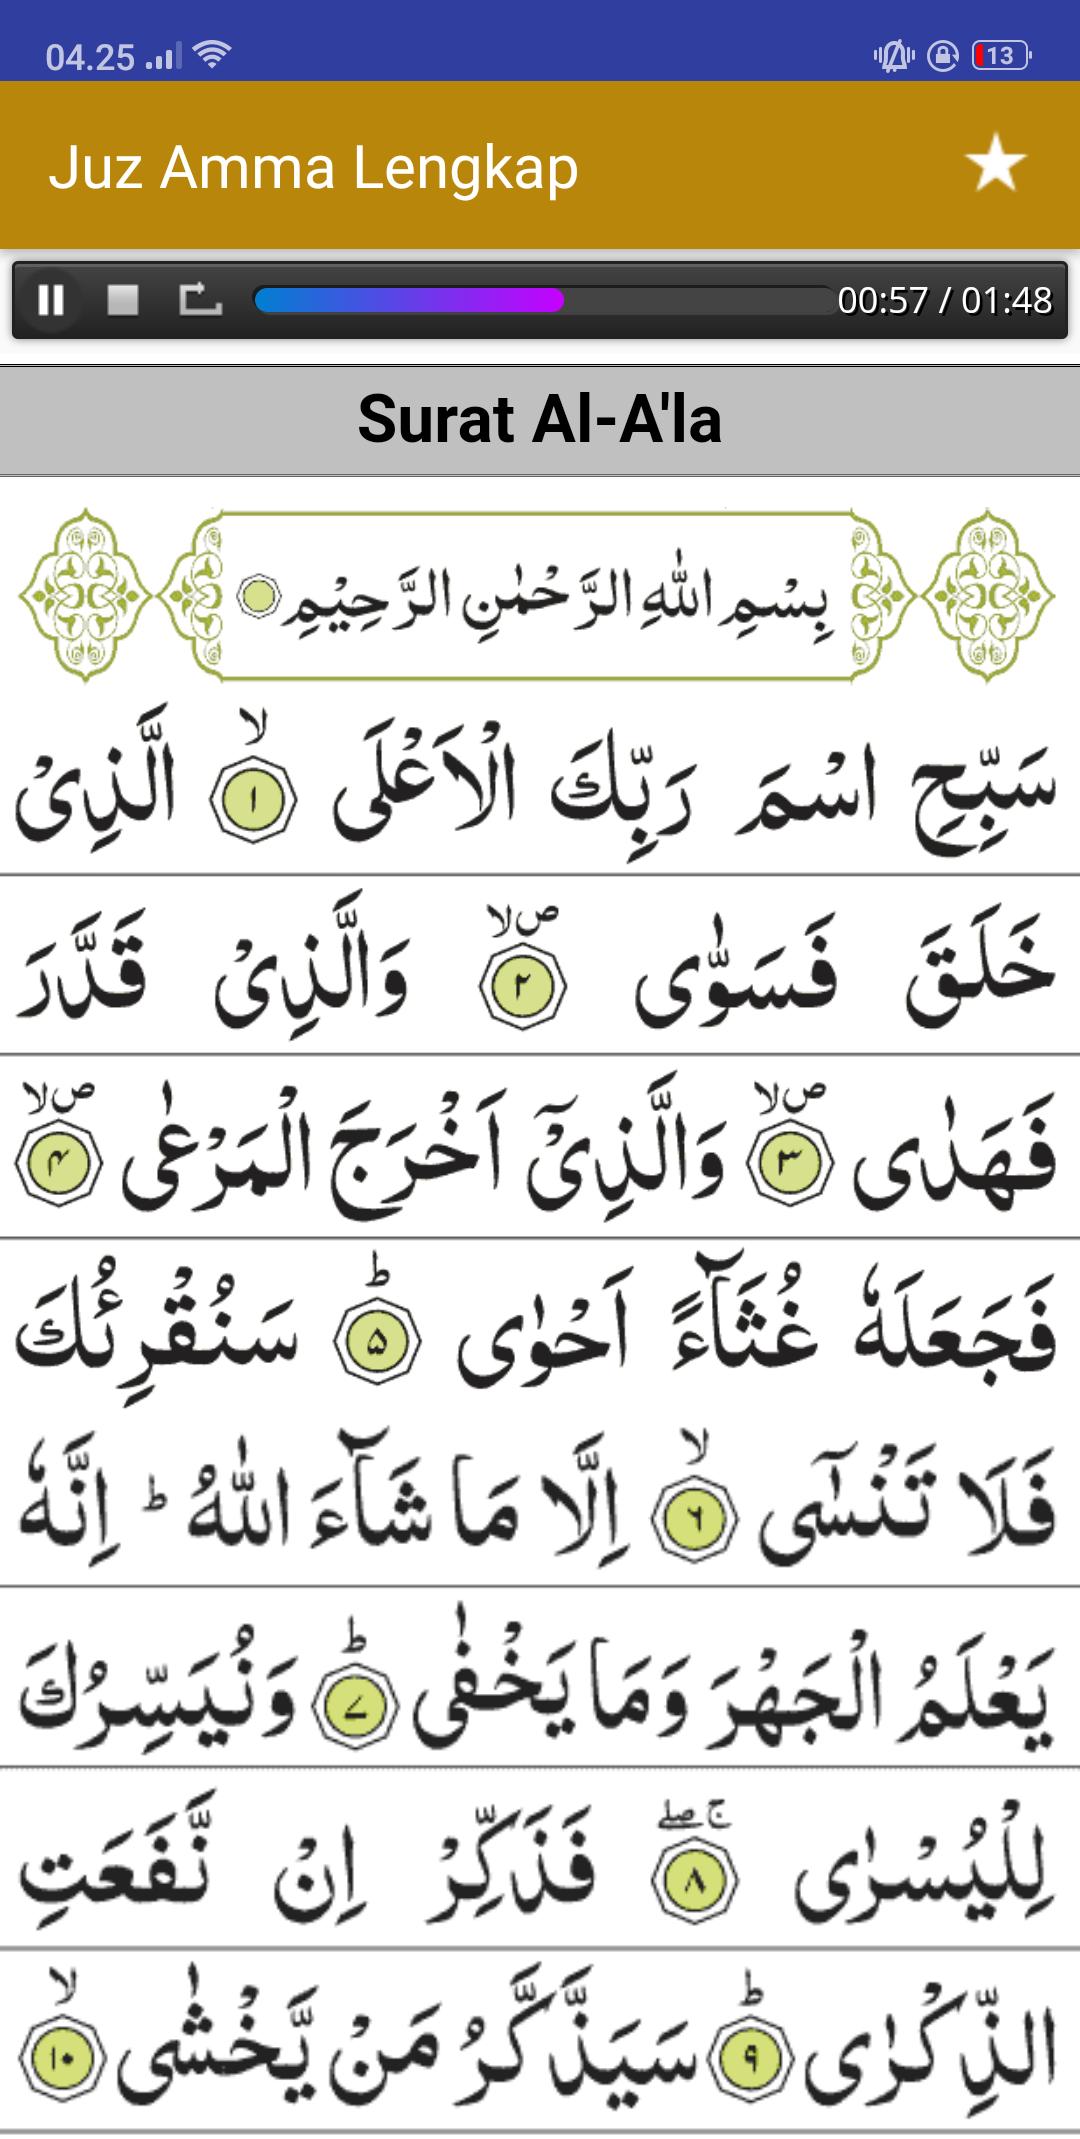 04.25 13
Juz Amma Lengkap
00:57 / 01:48
Surat Al-A'la
بِسْمِ اللّٰهِ الرَّحْمٰنِ الرَّحِيْمِ
سَبِّحِ اسْمَ رَبِّكَ الْاَعْلَى ۙ ١ الَّذِيْ
خَلَقَ فَسَوّٰى ۖۙ ٢ وَالَّذِيْ قَدَّرَ
فَهَدٰى ۖۙ ٣ وَالَّذِيْٓ اَخْرَجَ الْمَرْعٰى ۖۙ ۴
فَجَعَلَهٗ غُثَاۤءً اَحْوٰى ؕ ۵ سَنُقْرِئُكَ
فَلَا تَنْسٰٓى ۙ ٦ اِلَّا مَا شَاۤءَ اللّٰهُ ؕ اِنَّهٗ
يَعْلَمُ الْجَهْرَ وَمَا يَخْفٰى ؕ ٧ وَنُيَسِّرُكَ
لِلْيُسْرٰى ۖۚ ٨ فَذَكِّرْ اِنْ نَّفَعَتِ
الذِّكْرٰى ؕ ٩ سَيَذَّكَّرُ مَنْ يَّخْشٰى ۙ ١٠